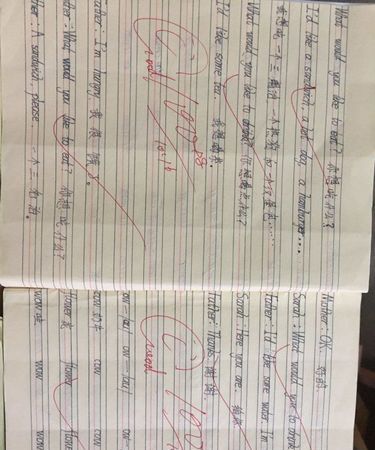 What would you like to eat? 你想吃什么?
I'd like a sandwich, a hot dog, a hamburger...
我想吃一个三明治,一个热狗和一个汉堡包......
What would you like to drink? 你想喝点什么?
I'd like some tea. 我想喝茶。
100
10.18
ather: I'm hungry 我想饿了。
ther: What would you like to eat? 你想吃什么?
ther: A sandwich, please. 一个三明治。
Mother: OK. 好的
Sarah: What would you like to drink
Father: I'd like some water. I'm
Sarah: Here you are. 给你
Father: Thanks. 谢谢。
100
ow-/au/ ow-/əu/ ow-
cow 奶牛 cow cow
flower 花 flower flowe
wow 哇 wow wow